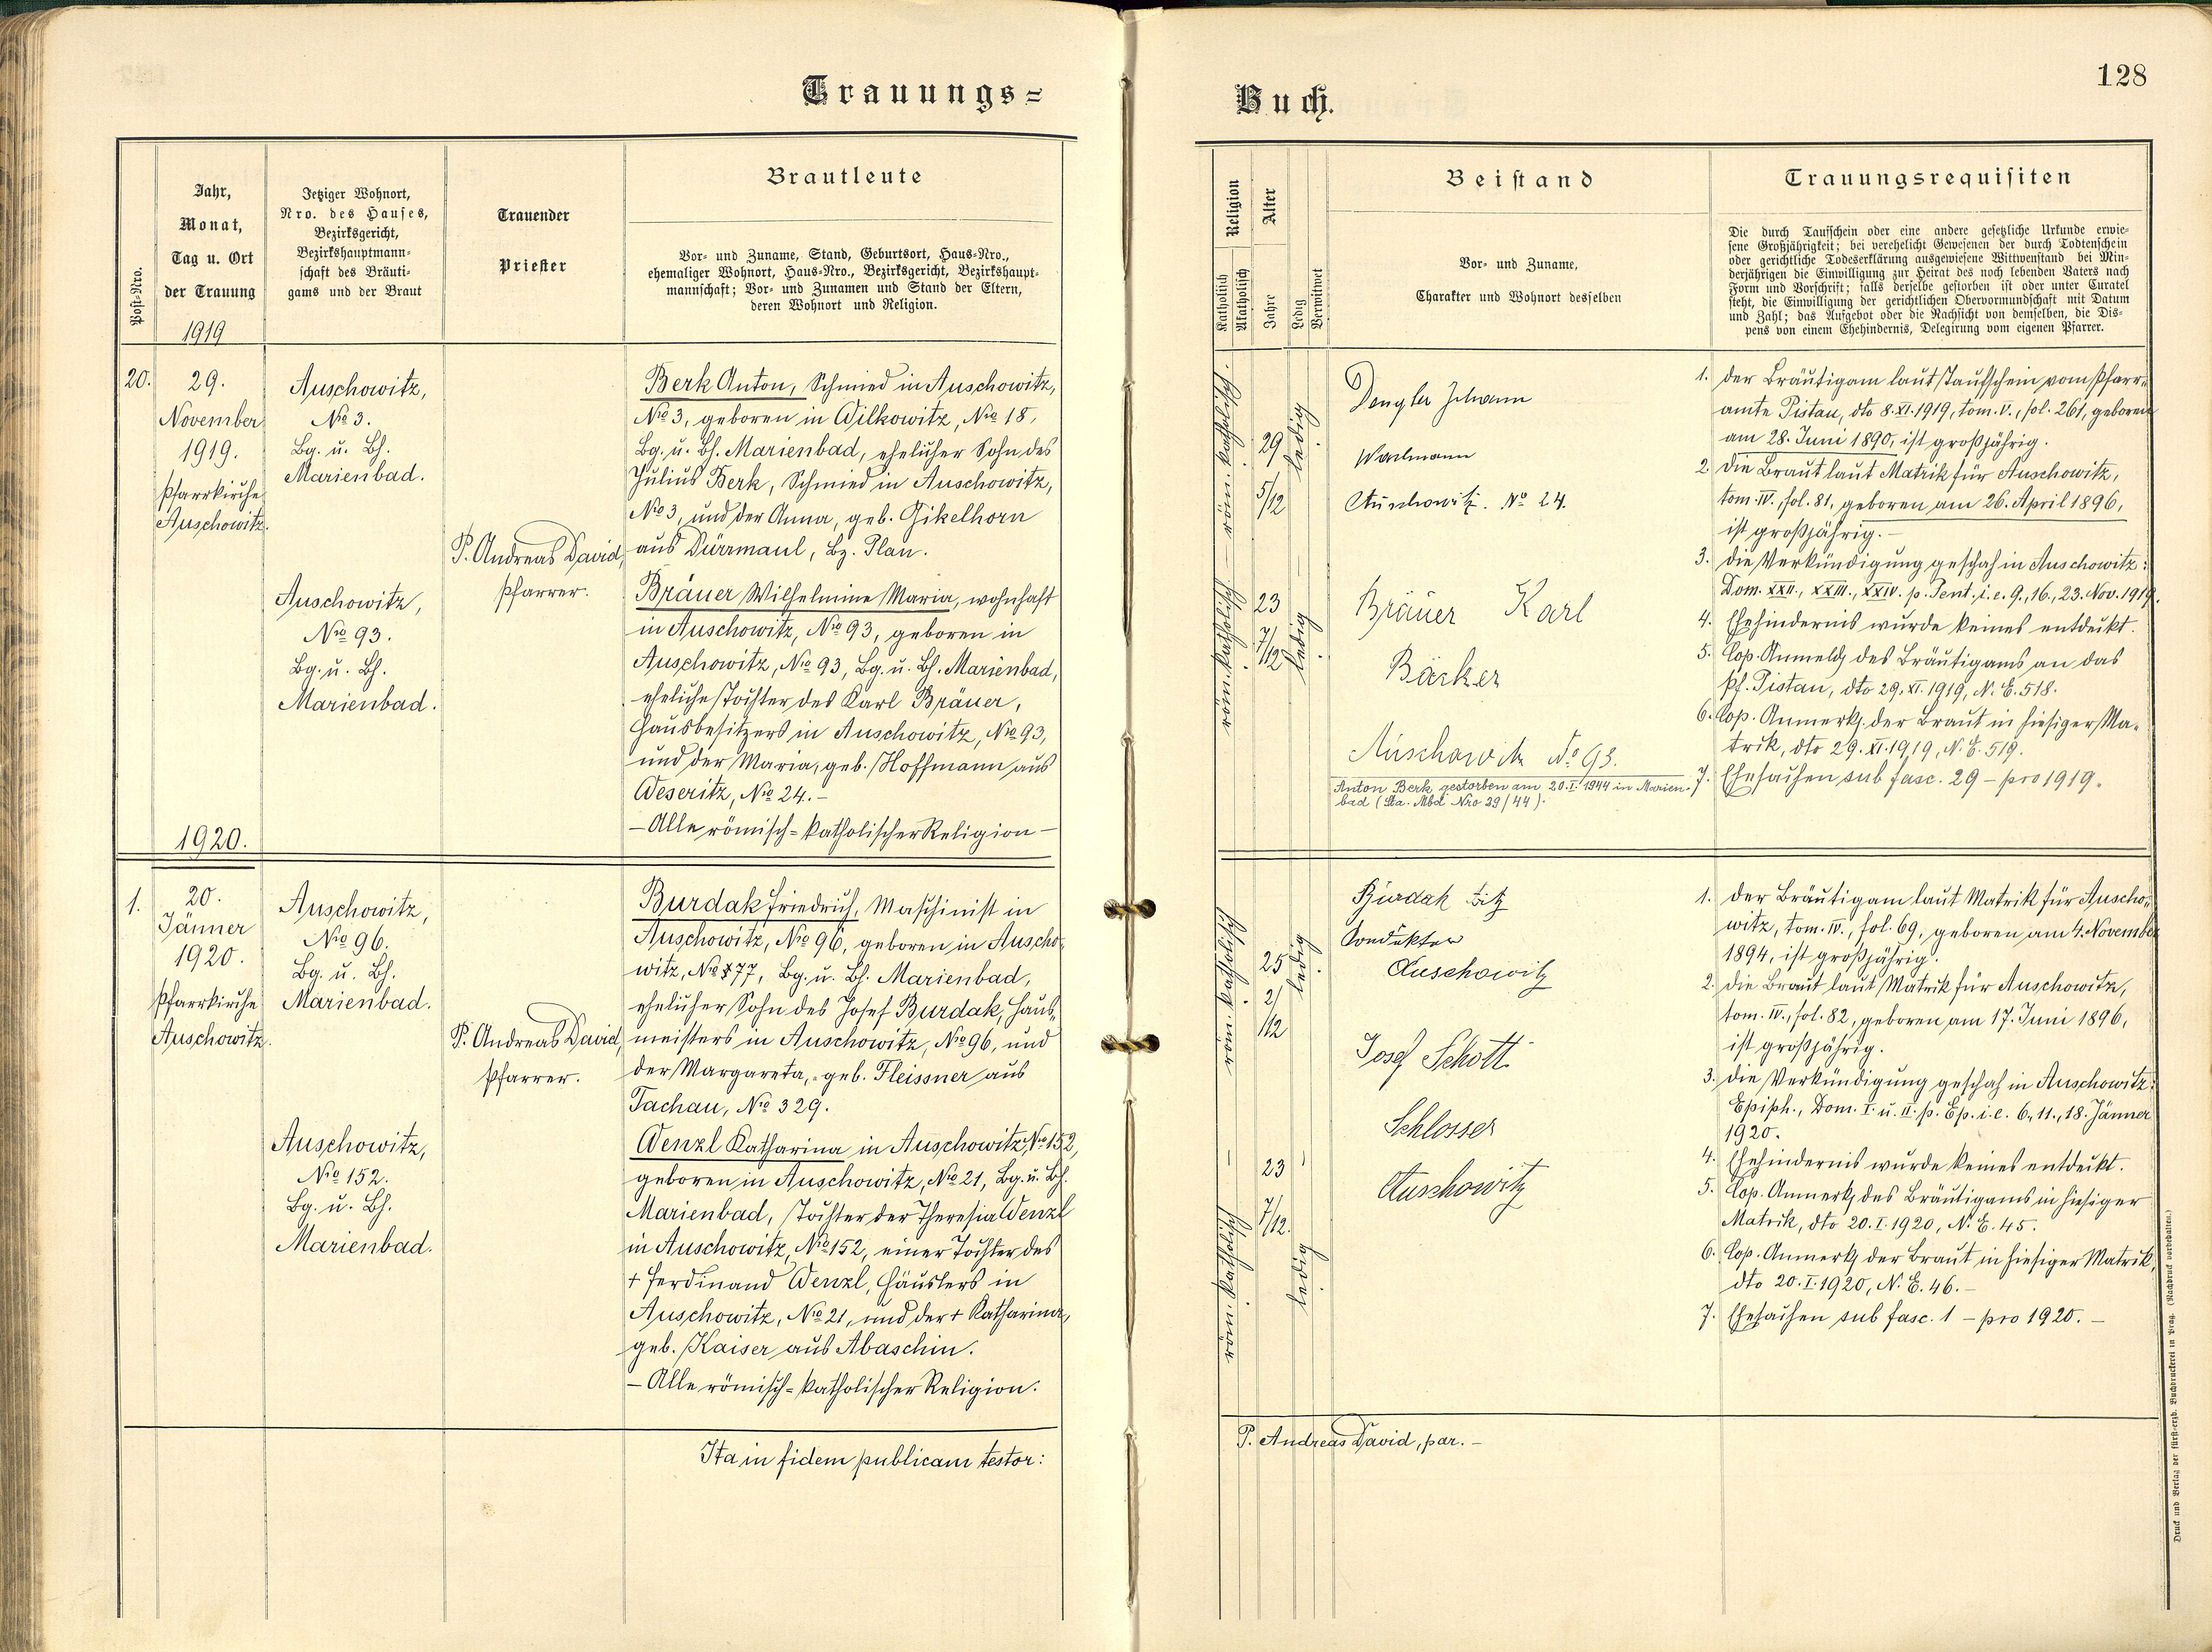 Trauungs-
Jahr,
Monat,
Tag u. Ort
der Trauung
1919
Post-Nro.
Jetziger Wohnort,
Nro. des Hauses,
Bezirksgericht,
Bezirkshauptmann-
schaft des Bräuti-
gams und der Braut
Trauender
Priester
Brautleute
Vor- und Zuname, Stand, Geburtsort, Haus-Nro.,
ehemaliger Wohnort, Haus-Nro., Bezirksgericht, Bezirkshaupt-
mannschaft; Vor- und Zunamen und Stand der Eltern,
deren Wohnort und Religion.
20.
29.
November
1919.
Pfarrkirche
Auschowitz.
Auschowitz,
Nro 3.
Bg. u. Bh.
Marienbad.
Auschowitz,
Nro 93.
Bg. u. Bh.
Marienbad.
P. Andreas David,
Pfarrer.
Berk Anton, Schmied in Auschowitz,
Nro 3, geboren in Wilkowitz, Nro 18,
Bg. u. Bh. Marienbad, ehelicher Sohn des
Julius Berk, Schmied in Auschowitz,
Nro 3, und der Anna, geb. Gikelhorn
aus Dürrmaul, Bz. Plan.
Bräuer Wilhelmine Maria, wohnhaft
in Auschowitz, Nro 93, geboren in
Auschowitz, Nro 93, Bg. u. Bh. Marienbad,
eheliche Tochter des Karl Bräuer,
Hausbesitzers in Auschowitz, Nro 93,
und der Maria, geb. Hoffmann aus
Weseritz, Nro 24. –
– Alle römisch-katholischer Religion –
1920.
1.
20.
Jänner
1920.
Pfarrkirche
Auschowitz.
Auschowitz,
Nro 96.
Bg. u. Bh.
Marienbad.
Auschowitz,
Nro 152.
Bg. u. Bh.
Marienbad.
P. Andreas David,
Pfarrer.
Burdak Friedrich, Maschinist in
Auschowitz, Nro 96, geboren in Auscho-
witz, Nro 77, Bg. u. Bh. Marienbad,
ehelicher Sohn des Josef Burdak, Haus-
meisters in Auschowitz, Nro 96, und
der Margareta, geb. Fleissner aus
Tachau, Nro 329.
Wenzl Katharina in Auschowitz, Nro 152,
geboren in Auschowitz, Nro 21, Bg. u. Bh.
Marienbad, Tochter der Theresia Wenzl
in Auschowitz, Nro 152, einer Tochter des
+ Ferdinand Wenzl, Häuslers in
Auschowitz, Nro 21, und der + Katharina,
geb. Kaiser aus Abaschin.
– Alle römisch-katholischer Religion.
Ita in fidem publicam testor:
Buch.
128
Religion
Katholisch
Akatholisch
Alter
Jahre
Ledig
Verwitwet
Beistand
Vor- und Zuname,
Charakter und Wohnort desselben
Trauungsrequisiten
Die durch Taufschein oder eine andere gesetzliche Urkunde erwie-
sene Großjährigkeit; bei verehelicht Gewesenen der durch Todtenschein
oder gerichtliche Todeserklärung ausgewiesene Wittwenstand bei Min-
derjährigen die Einwilligung zur Heirat des noch lebenden Vaters nach
Form und Vorschrift; falls derselbe gestorben ist oder unter Curatel
steht, die Einwilligung der gerichtlichen Obervormundschaft mit Datum
und Zahl; das Aufgebot oder die Nachsicht von demselben, die Dis-
pens von einem Ehehindernis, Delegirung vom eigenen Pfarrer.
röm. katholisch.
29
5/12
ledig
röm. katholisch.
23
7/12
ledig
Dengler Johann
Auschowitz. No 24.
Bräuer Karl
Bäcker
Auschowitz No 93.
Anton Berk gestorben am 20.I.1944 in Marien-
bad (Sta. Mbd Nro 29/44).
1. der Bräutigam laut Taufschein vom Pfarr-
amte Pistau, dto 8.XI.1919, tom. V., fol. 261, geboren
am 28. Juni 1890, ist großjährig.
2. die Braut laut Matrik für Auschowitz,
tom. IV., fol. 81, geboren am 26. April 1896,
ist großjährig. –
3. die Verkündigung geschah in Auschowitz:
Dom. XXII., XXIII., XXIV. p. Pent. i. e. 9., 16., 23. Nov. 1919.
4. Ehehindernis wurde keines entdeckt.
5. Cop. Anmeldg des Bräutigams an das
Pf. Pistau, dto 29.XI.1919, N. E. 518.
6. Cop. Anmerkg. der Braut in hiesiger Ma-
trik, dto 29.XI.1919, N. E. 519.
7. Ehesachen sub fasc. 29 – pro 1919.
röm. katholisch
25
2/12
ledig
röm. katholisch
23
7/12.
ledig
Burdak Fitz
Kondukteur
Auschowitz
Josef Schott
Schlosser
Auschowitz
1. der Bräutigam laut Matrik für Auscho-
witz, tom. IV., fol. 69, geboren am 4. November
1894, ist großjährig.
2. die Braut laut Matrik für Auschowitz,
tom. IV., fol. 82, geboren am 17. Juni 1896,
ist großjährig.
3. die Verkündigung geschah in Auschowitz:
Epiph., Dom. I. u. II. p. Ep. i. e. 6., 11., 18. Jänner
1920.
4. Ehehindernis wurde keines entdeckt.
5. Cop. Anmerkg des Bräutigams in hiesiger
Matrik, dto 20.I.1920, N. E. 45.
6. Cop. Anmerkg der Braut in hiesiger Matrik,
dto 20.I.1920, N. E. 46. –
7. Ehesachen sub fasc. 1 – pro 1920. –
P. Andreas David, par. –
Druck und Verlag der fürst-erzb. Buchdruckerei in Prag. (Nachdruck vorbehalten.)